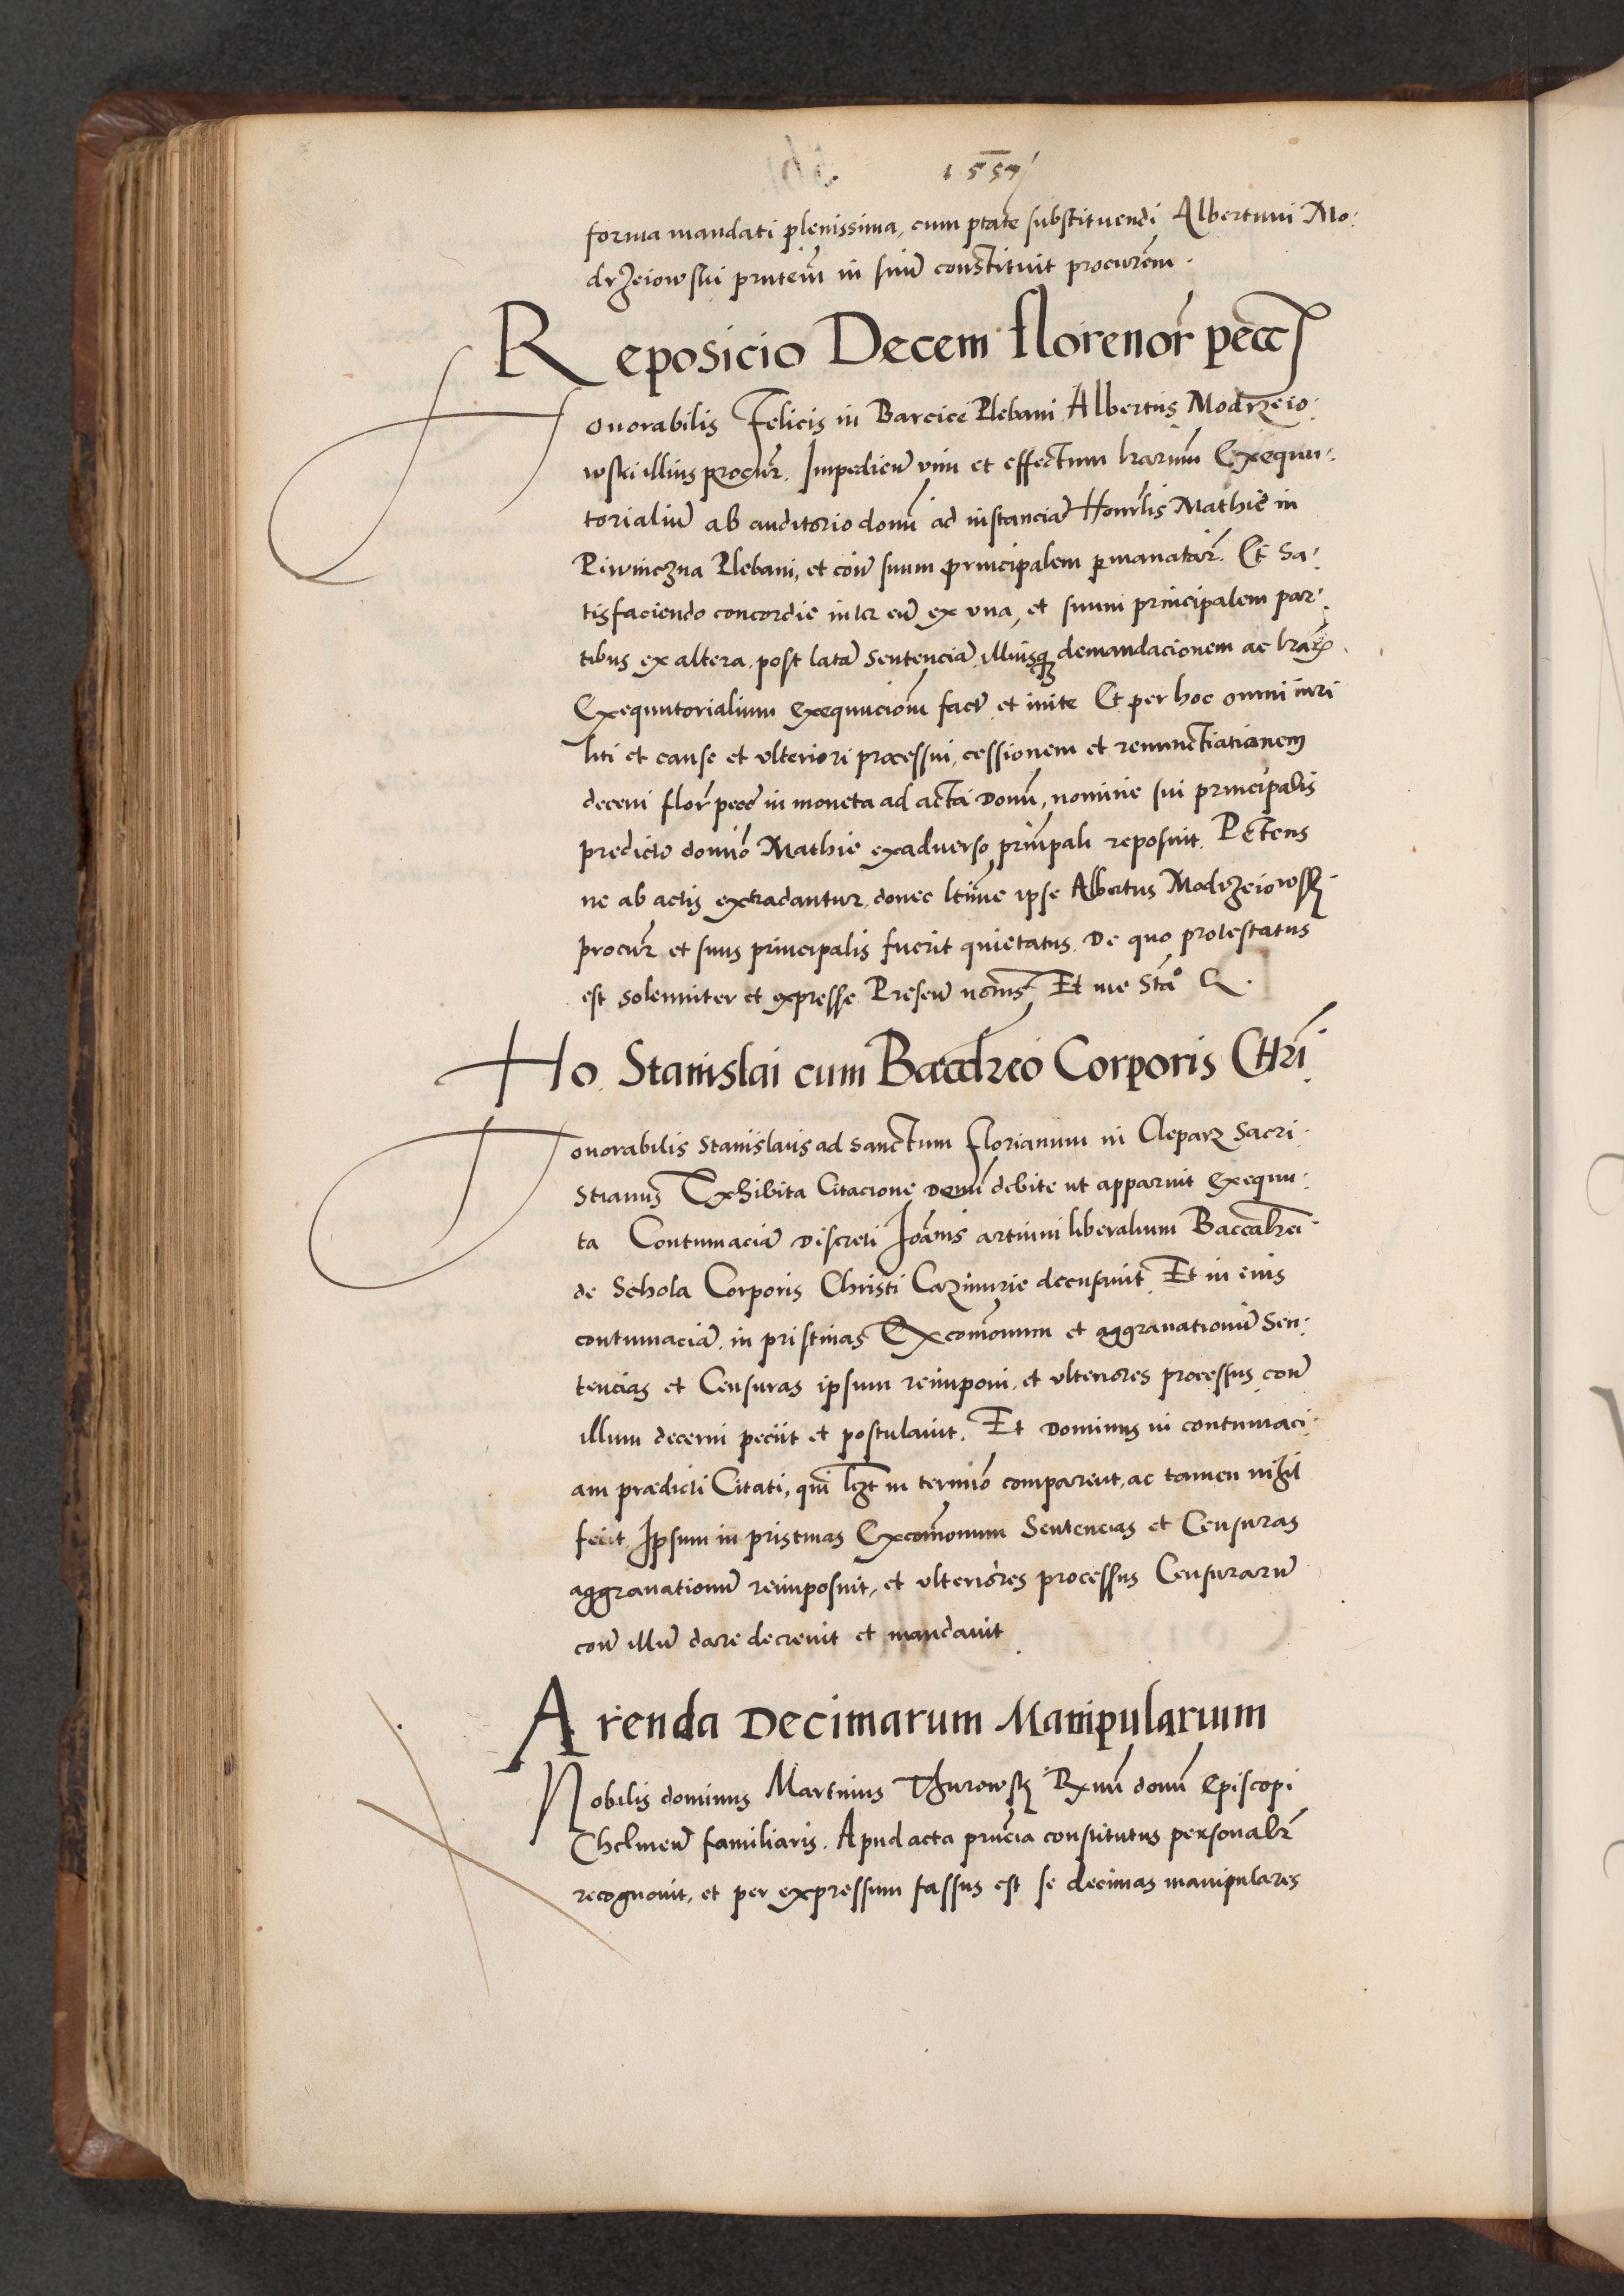 1557
forma mandati plenissima, cum ptate substituendi Albertum Mo:
drzeiowski pntem in suu constituit procurem.
Reposicio Decem florenor pecc
Honorabilis Felicis in Barcice Plebani Albertus Modrzeio:
wski illius procur. Impedien vim et effectum lrarum Exequu:
torialiu ab auditorio domi ad instancia Honrlis Mathie in
Piwniczna Plebani, et con suum principalem pmanatar. Et Sa:
tisfaciendo concordie inter eu ex vna, et suum principalem par:
tibus ex altera, post lata sententia, illiusq demandacionem ac lrar.
Exequutorialium exequucionem fact et inite Et per hoc omni iuri
liti et cause et vlteriori processui, cessionem et renunctiationem
decem flor pecc in moneta ad acta Domi, nomine sui principalis
predicto domio Mathie exadverso principali reposuit. Petens
ne ab actis extradantur, donec ltime ipse Albertus Modrzeiowsk
procur et suus principalis fuerit quietatus. De quo protestatus
est solemniter et expresse Presen Et me Sta
Ho. Stanislai cum Baccalreo Corporis Chri
Honorabilis Stanislaus ad Sanctum Florianum in Cleparz Sacri:
stianus Exhibita Citacione Domi debite ut apparuit exequu:
ta Contumacia Discreti Joannis artium liberalium Baccalrei
de Schola Corporis Christi Cazimirie accusavit. Et in eius
contumacia, in pristinas Excomonum et aggrauationu Sen:
tencias et Censuras ipsum reimponi, et vlteriores processus con
illum decerni peciit et postulauit. Et Dominus in contumaci:
am prædicti Citati, qui lzt in termio comparerit, ac tamen nihil
fecit. Ipsum in pristinas Excomonum Sentencias et Censuras
aggrauationu reimposuit, et vlteriores processus Censuraru
con illu dare decreuit et mandauit
Arenda Decimarum Manipularium
Nobilis dominus Martinus Thurowsk Rxmi domi Episcopi
Chelmen familiaris. Apud acta pncia constitutus personalr
recognouit, et per expressum fassus est se decimas manipulares